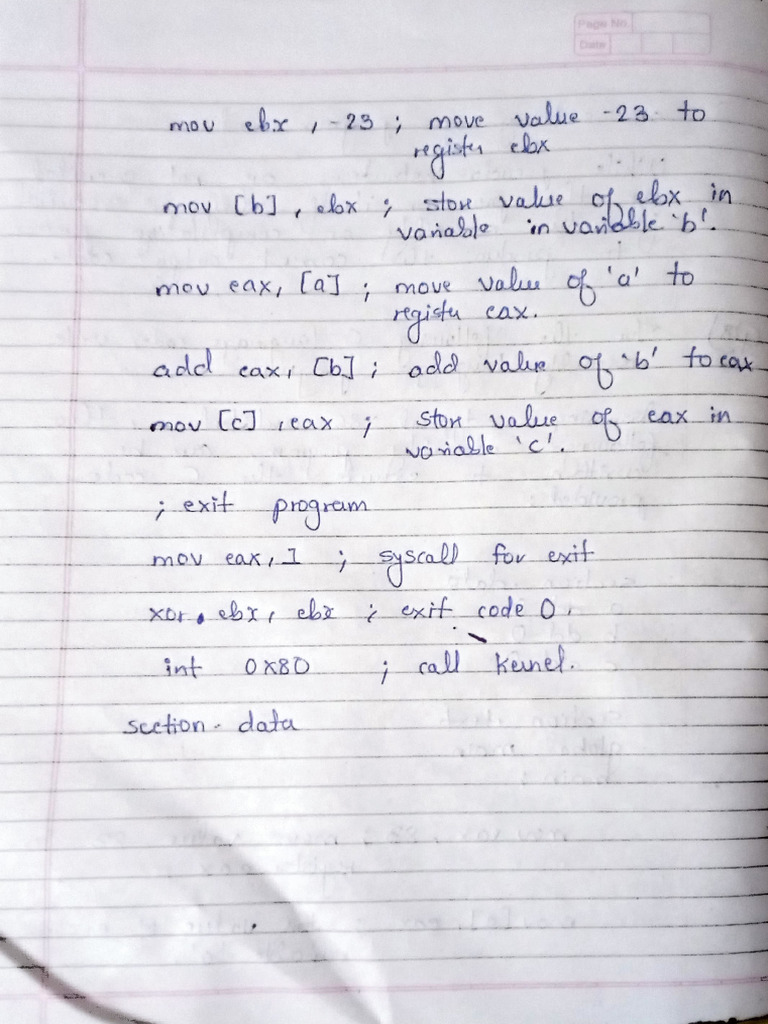 Page No.
Date
mov ebx, -23 ; move value -23 to
register ebx
mov [b], ebx ; store value of ebx in
variable in variable 'b'.
mov eax, [a] ; move value of 'a' to
register eax.
add eax, [b] ; add value of 'b' to eax
mov [c], eax ; store value of eax in
variable 'c'.
; exit program
mov eax, 1 ; syscall for exit
xor. ebx, ebx ; exit code 0.
int 0x80 ; call kernel.
section. data